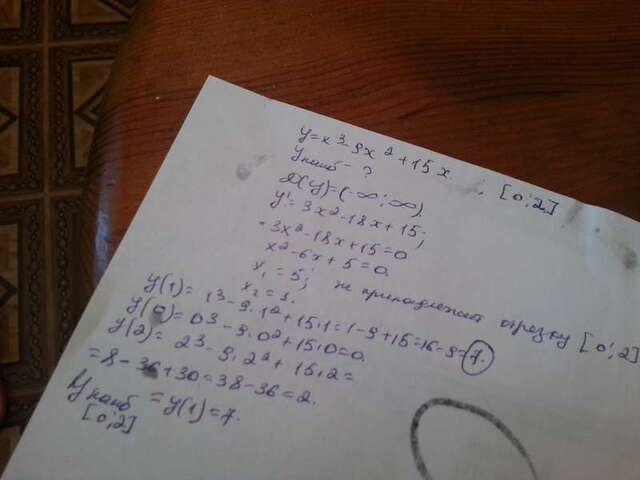 y=x³-9x²+15x ; [0;2]
yнаиб - ?
D(y)=(-∞;∞)
y'=3x²-18x+15;
3x²-18x+15=0
x²-6x+5=0
x₁=5; не принадлежит отрезку [0;2]
x₂=1.
y(1)=1³-9·1²+15·1=1-9+15=16-9=7.
y(0)=0³-9·0²+15·0=0
y(2)=2³-9·2²+15·2=
=8-36+30=38-36=2.
yнаиб =y(1)=7.
[0;2]